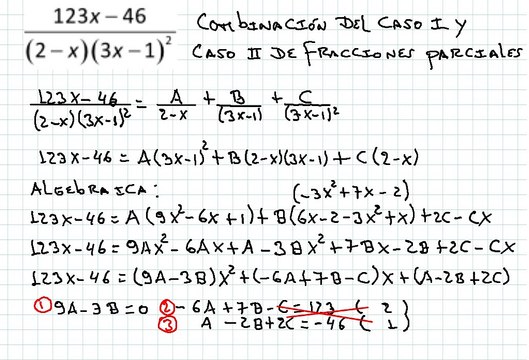 123x – 46
(2 – x)(3x – 1)²
COMBINACIÓN DEL CASO I Y
CASO II DE FRACCIONES PARCIALES
123x-46 / (2-x)(3x-1)² = A / 2-x + B / (3x-1) + C / (3x-1)²
123x-46 = A(3x-1)² + B(2-x)(3x-1) + C(2-x)
ALGEBRAICA: (-3x²+7x-2)
123x-46 = A(9x²-6x+1) + B(6x-2-3x²+x) + 2C-Cx
123x-46 = 9Ax²-6Ax+A-3Bx²+7Bx-2B+2C-Cx
123x-46 = (9A-3B)x²+(-6A+7B-C)x+(A-2B+2C)
① 9A-3B=0 ② -6A+7B-C=123 ( 2 }
③ A-2B+2C=-46 ( 1 }